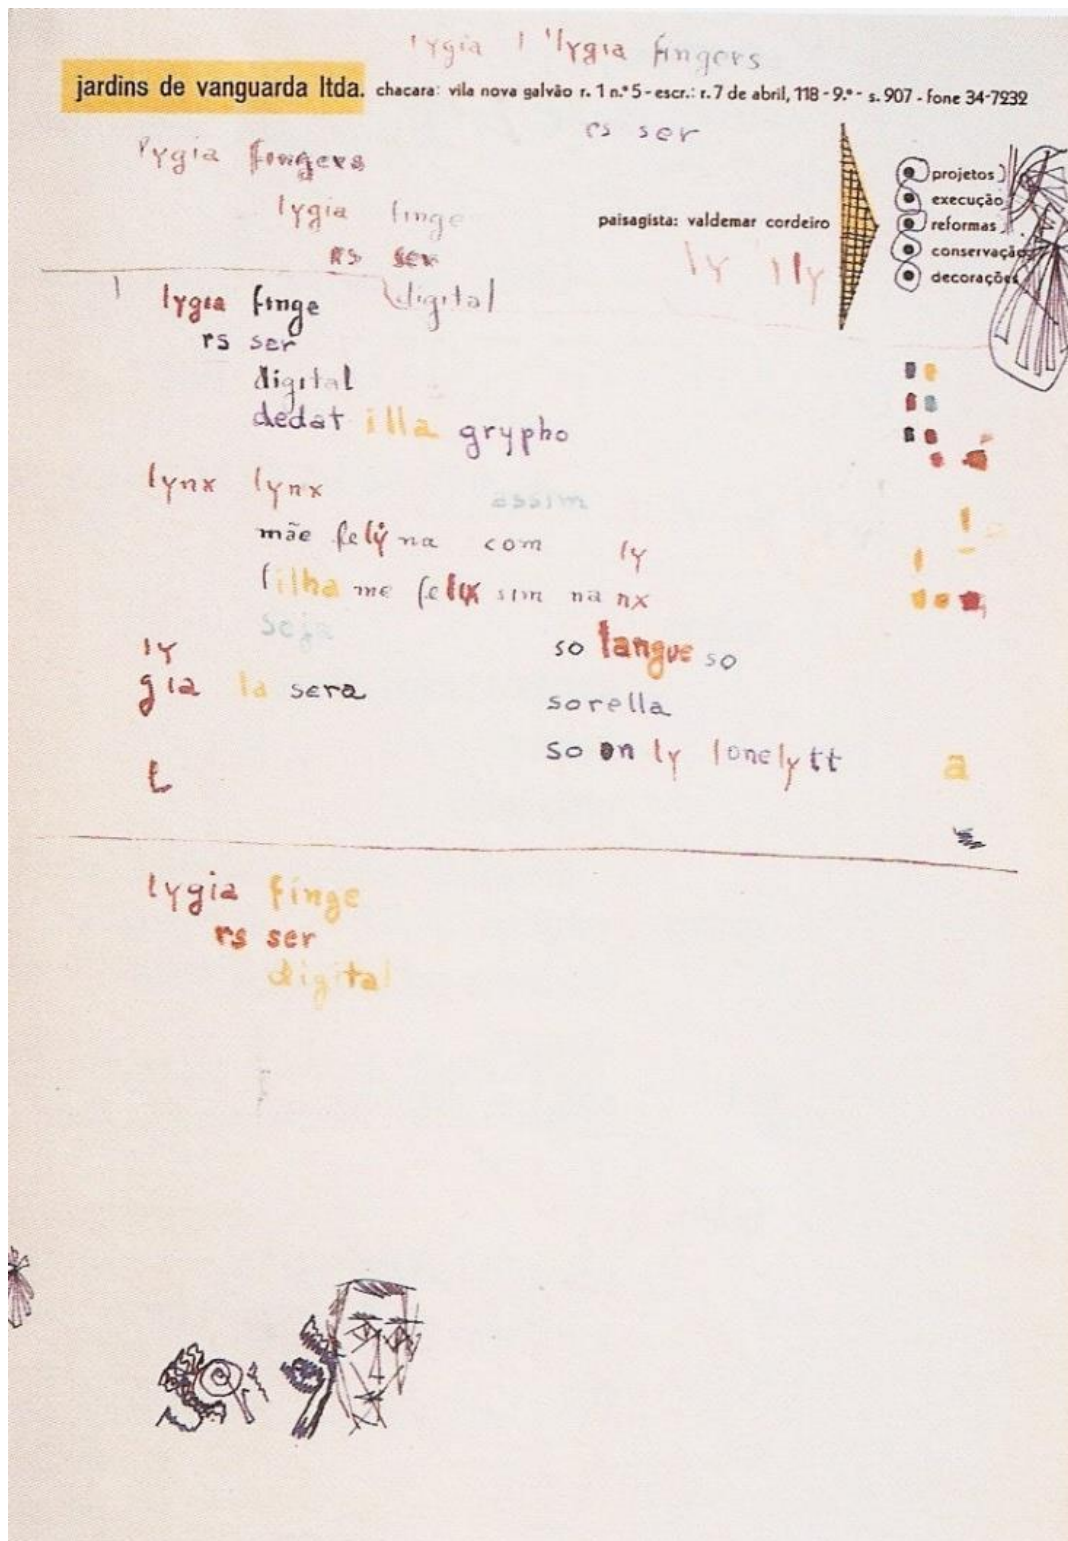 lygia l lygia fingers
jardins de vanguarda ltda. chacara: vila nova galvão r. 1 n.º 5 - escr.: r. 7 de abril, 118 - 9.º - s. 907 - fone 34-7232
rs ser
lygia fingers
projetos
execução
lygia finge
paisagista: valdemar cordeiro
reformas
rs ser
ly lly
conservação
decorações
l lygia finge digital
rs ser
digital
dedat illa grypho
lynx lynx
assim
mãe felyna com ly
filha me felix sim na nx
seja
ly
so langue so
gia la sera
sorella
so only lonely tt
a
L
lygia finge
rs ser
digital